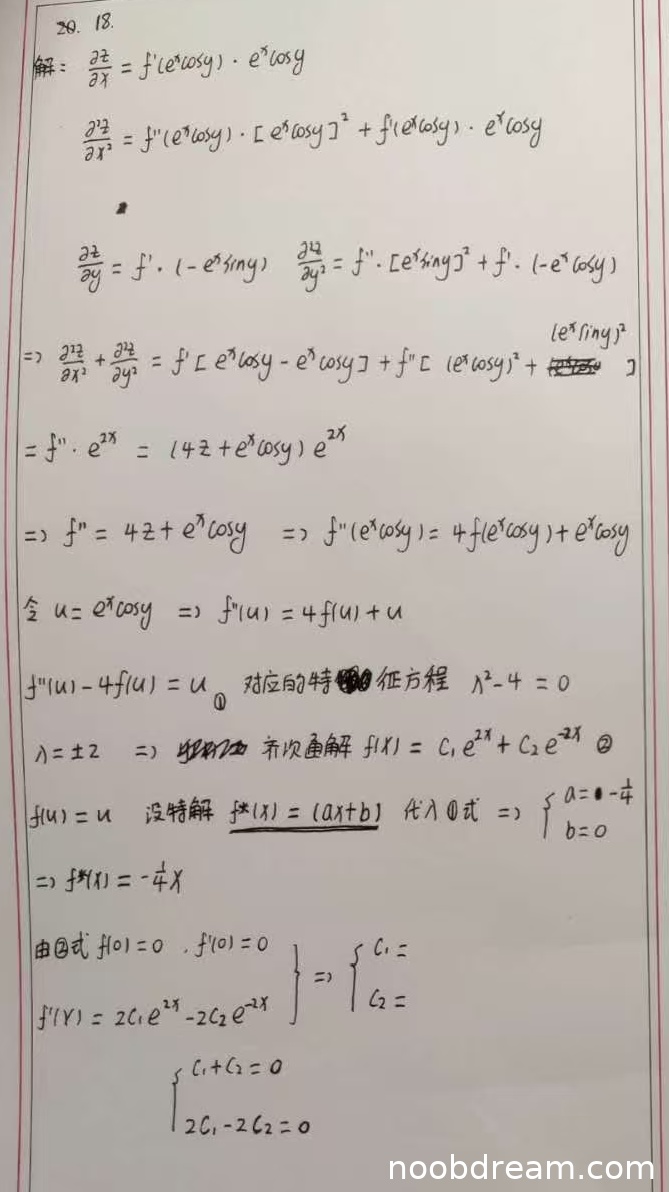 20. 18.
解: ∂z/∂x = f'(eˣcosy) · eˣcosy
∂²z/∂x² = f''(eˣcosy) · [eˣcosy]² + f'(eˣcosy) · eˣcosy
∂z/∂y = f' · (-eˣsiny) ∂²z/∂y² = f'' · [eˣsiny]² + f' · (-eˣcosy)
=> ∂²z/∂x² + ∂²z/∂y² = f'[eˣcosy - eˣcosy] + f''[(eˣcosy)² + (eˣsiny)²]
= f'' · e²ˣ = (4z + eˣcosy) e²ˣ
=> f'' = 4z + eˣcosy => f''(eˣcosy) = 4f(eˣcosy) + eˣcosy
令 u = eˣcosy => f''(u) = 4f(u) + u
f''(u) - 4f(u) = u ① 对应的特征方程 λ² - 4 = 0
λ = ±2 => 齐次通解 f(x) = C₁e²ˣ + C₂e⁻²ˣ ②
f(u) = u 设特解 f*(x) = (ax+b) 代入①式 => { a = -1/4
b = 0
=> f*(x) = -1/4 x
由②式 f(0) = 0 , f'(0) = 0 } => { C₁ =
f'(x) = 2C₁e²ˣ - 2C₂e⁻²ˣ C₂ =
{ C₁ + C₂ = 0
2C₁ - 2C₂ = 0
noobdream.com